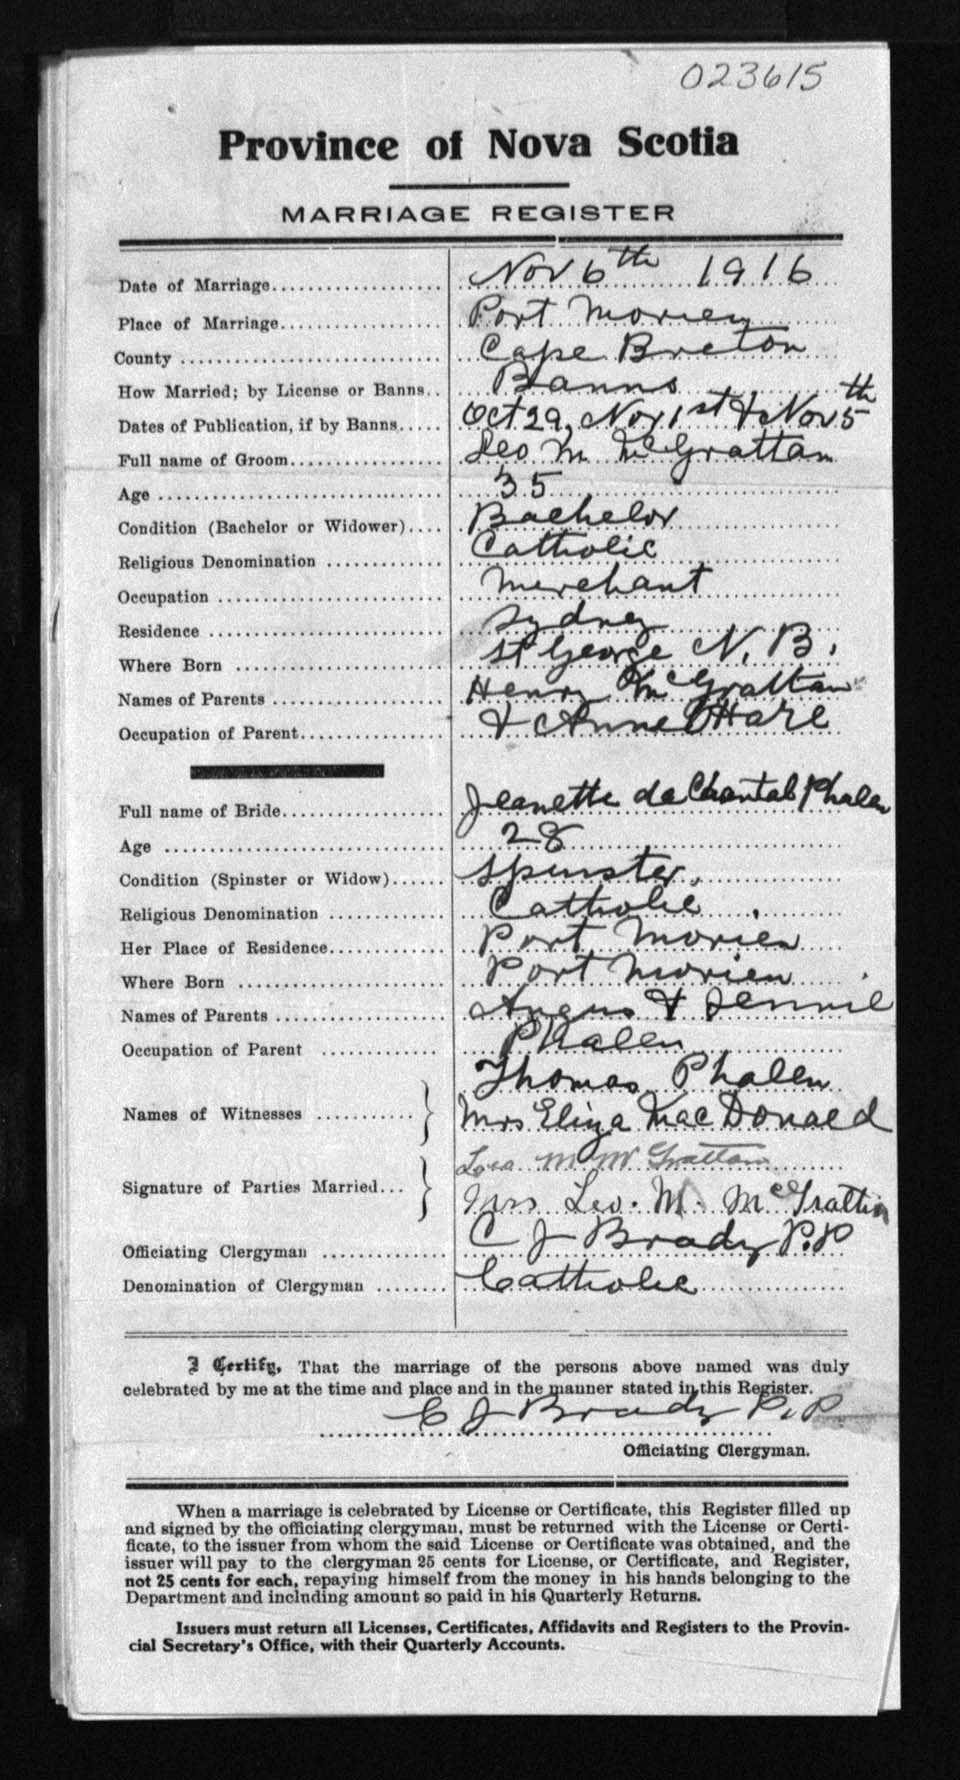 023615
Province of Nova Scotia
MARRIAGE REGISTER
Date of Marriage Nov 6th 1916
Place of Marriage Port Morien
County Cape Breton
How Married; by License or Banns Banns
Dates of Publication, if by Banns Oct 29, Nov 1st & Nov 5th
Full name of Groom Leo M McGrattan
Age 35
Condition (Bachelor or Widower) Bachelor
Religious Denomination Catholic
Occupation Merchant
Residence Sydney
Where Born St George N. B.
Names of Parents Henry McGrattan
Occupation of Parent & Anne OHare
Full name of Bride Jeanette de Chantal Phalen
Age 28
Condition (Spinster or Widow) Spinster
Religious Denomination Catholic
Her Place of Residence Port Morien
Where Born Port Morien
Names of Parents Angus & Jennie
Occupation of Parent Phalen
Thomas Phalen
Names of Witnesses Mrs Eliza MacDonald
Leo M McGrattan
Signature of Parties Married Mrs Leo. M. McGrattan
Officiating Clergyman C J Brady P.P
Denomination of Clergyman Catholic
I Certify, That the marriage of the persons above named was duly
celebrated by me at the time and place and in the manner stated in this Register.
C J Brady P.P.
Officiating Clergyman.
When a marriage is celebrated by License or Certificate, this Register filled up
and signed by the officiating clergyman, must be returned with the License or Certi-
ficate, to the issuer from whom the said License or Certificate was obtained, and the
issuer will pay to the clergyman 25 cents for License, or Certificate, and Register,
not 25 cents for each, repaying himself from the money in his hands belonging to the
Department and including amount so paid in his Quarterly Returns.
Issuers must return all Licenses, Certificates, Affidavits and Registers to the Provin-
cial Secretary's Office, with their Quarterly Accounts.